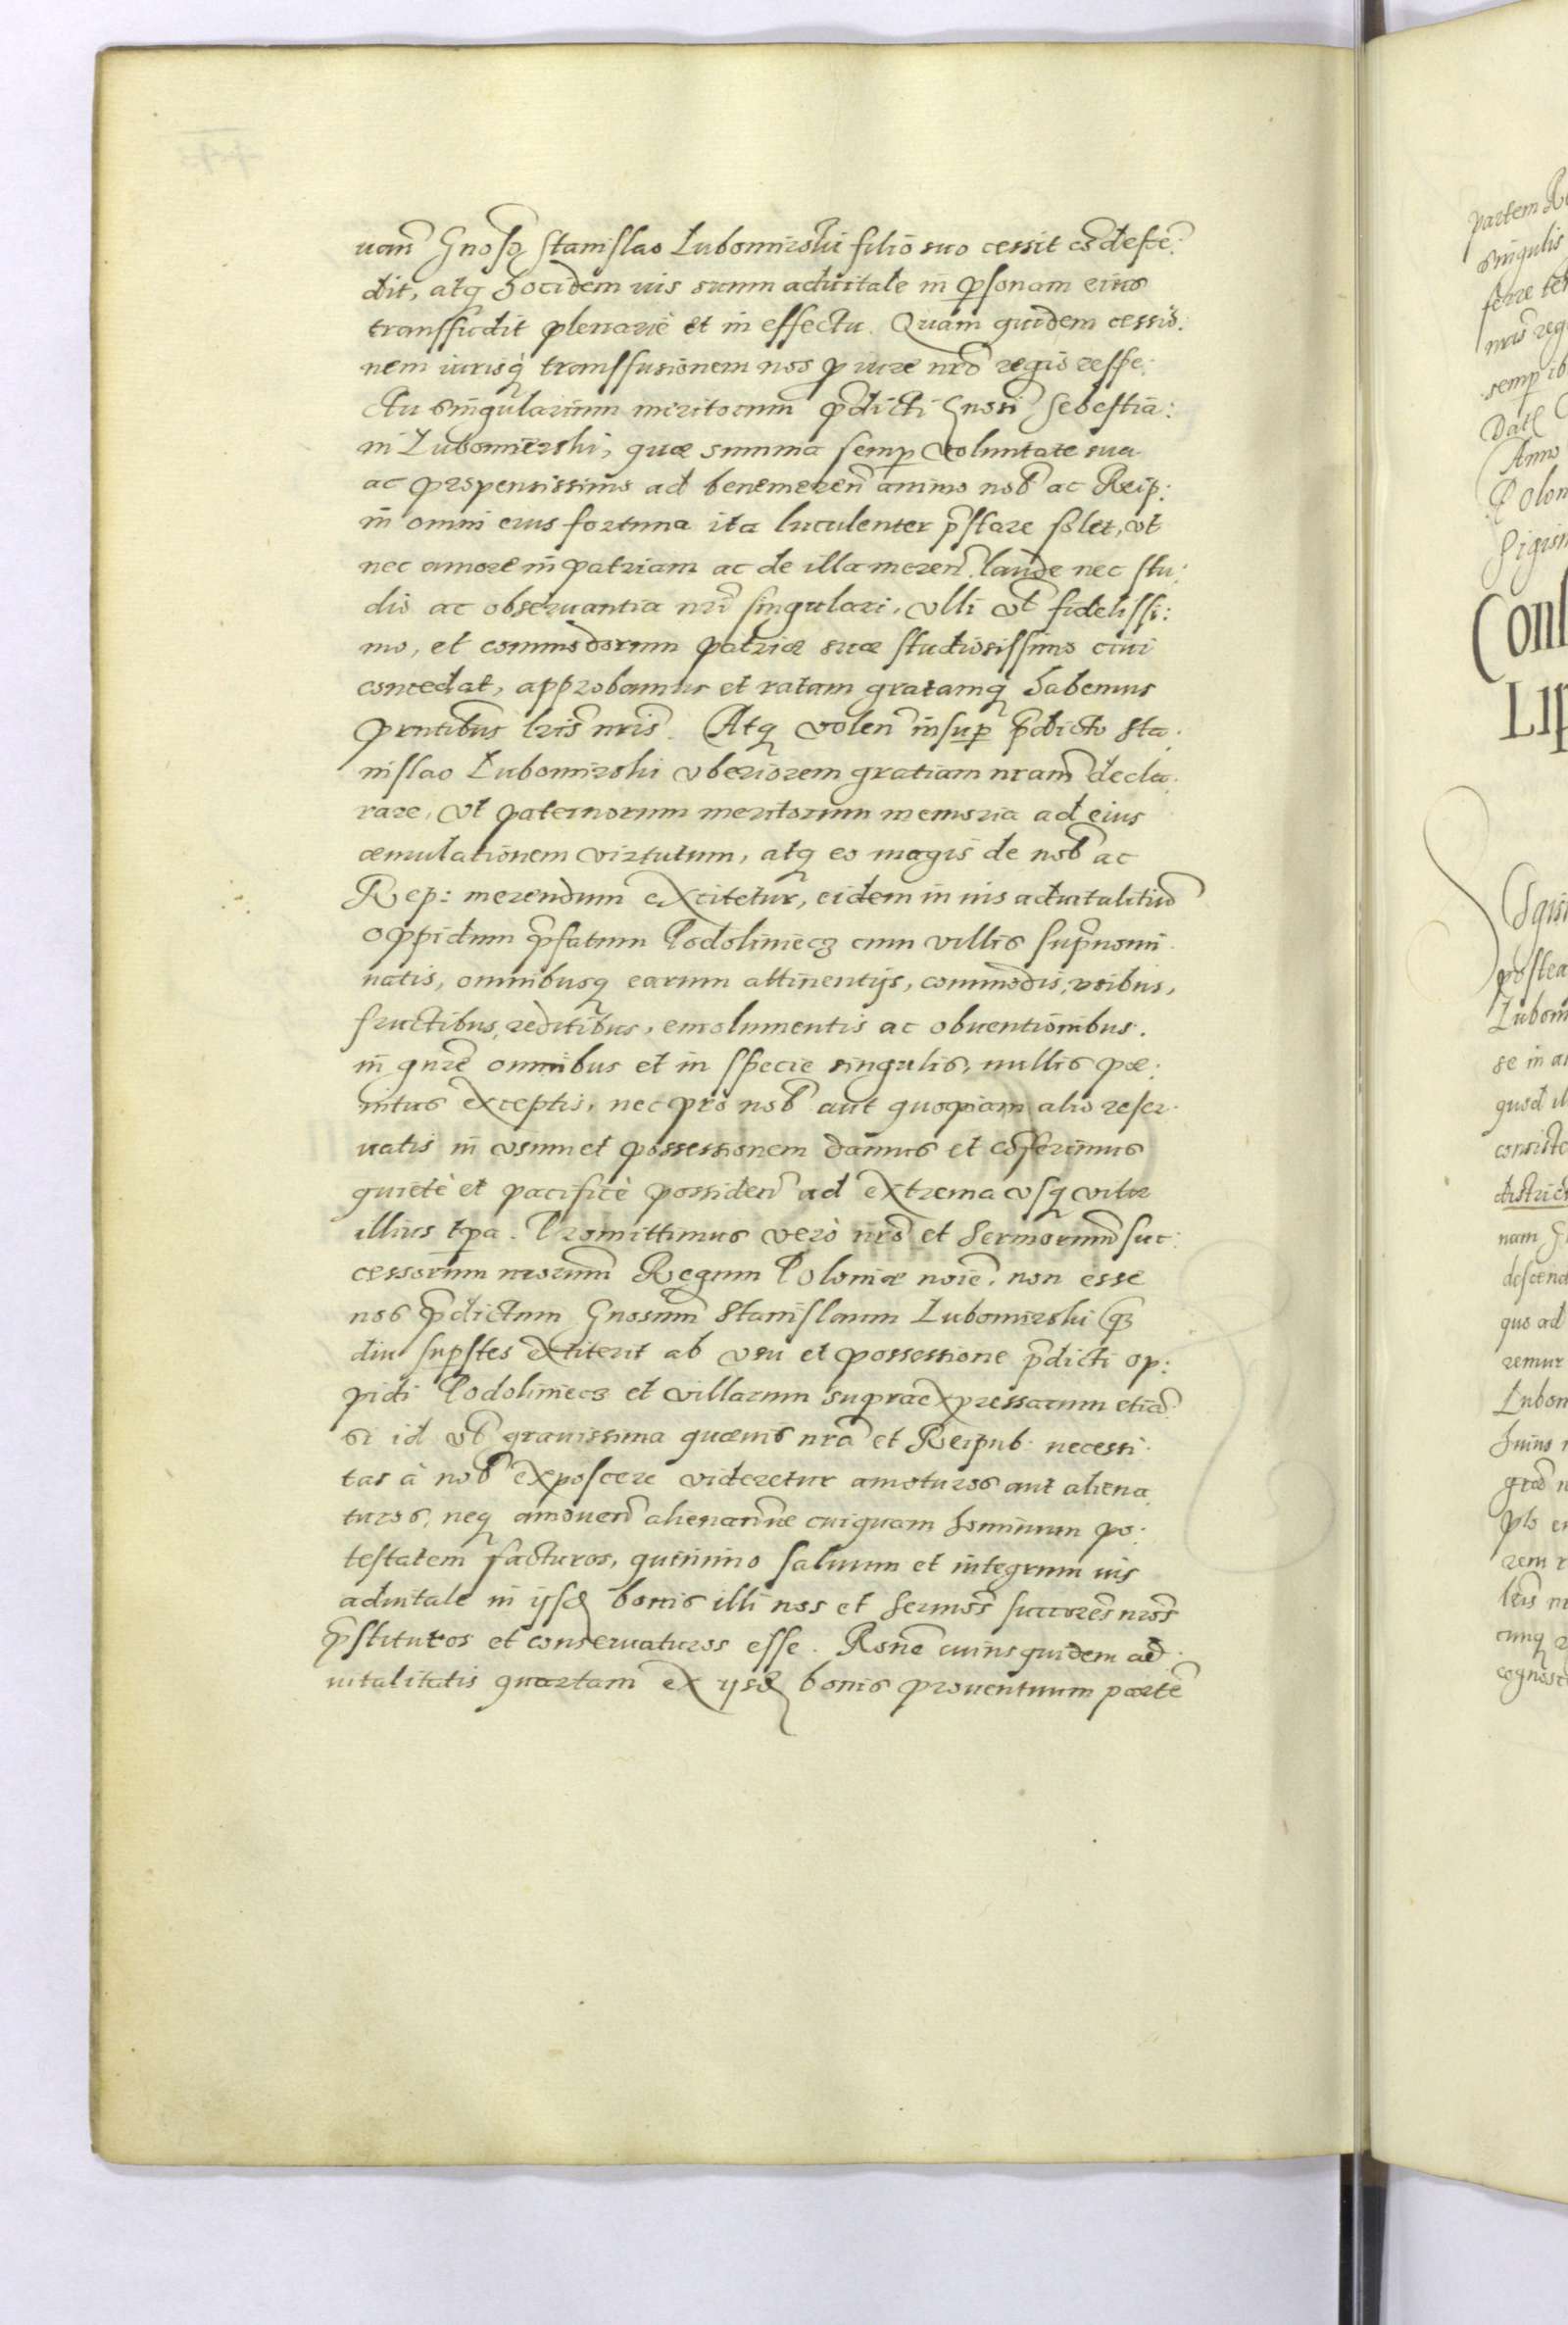 uam̃ Gnoso Stanislao Lubomirski filio suo cessit cõdescẽ:
dit, atq hocidem ius suum aduitale in psonam eius
transfudit plenariè et in effectu. Quam quidem cessio:
nem iurisq̀ transfusionem nos p iure nr̃o regio respe:
ctu singularium meritorum p̃dicti Gnosi Sebestia:
ni Lubomierski, quæ summa semp voluntate sua
ac propensissimo ad benemereñ animo nob̃ ac Reip:
in omni eius fortuna ita luculenter p̃stare solet, vt
nec amore in patriam ac de illa mereñ laude nec stu:
dio ac obseruantia nr̃i singulari, vlli vt̃ fidelissi:
mo, et commodorum patriæ suæ studiosissimo ciui
concedat, approbamus et ratam gratamq̀ habemus
pñtibus lr̃is nr̃is. Atq voleñ insup p̃dicto Sta:
nislao Lubomirski vberiorem gratiam nr̃am decla:
rare, vt paternorum meritorum memoria ad eius
æmulationem virtutum, atq eo magis de nob̃ ac
Rep: merendum excitetur, eidem in ius aduitalitiũ
oppidum p̃fatum Podoliniecz cum villis sup̃nomi:
natis, omnibusq earum attinentijs, commodis, vsibus,
fructibus, reditibus, emolumentis ac obuentionibus.
in gñre omnibus et in specie singulis, nullis pæ:
nitus exceptis, nec pro nob̃ aut quopiam alio reser:
uatis in vsum et possessionem damus et cõferimus
quietè et pacificè possideñ ad extrema vsq vitæ
illius tp̃a. Promittimus verò nr̃o et Sermorum̃ suc:
cessorum nr̃orum Regum Poloniæ noĩe, non esse
nos p̃dictum Gnosum Stanislaum Lubomirski q̃
diu supstes extiterit ab vsu et possessione p̃dicti op:
pidi Podoliniecz et villarum supraexpressarum etiã
si id vt̃ grauissima quæuis nr̃a et Reipub: necessi:
tas à nob̃ exposcere videretur amoturos aut aliena
turos, neq amoueñ alienanñe cuiquam hominum po:
testatem facturos, quinimo saluum et integrum ius
aduitale in ijsd bonis illi nos et Sermos̃ succores̃ nr̃os
p̃stituros et conseruaturos esse. Ron̄e cuius quidem ad:
uitalitatis quartam ex ijsd bonis prouentuum partẽ
partem
singulis
nr̃is reg
semp ib
Dat
Anno
Polon
Sigism
Conſ
LIP
postea
Lubom
se in a
quod il
consiste
district
nam
descend
quo ad
remur
Lubom
huius
rem r
lr̃is nr
cunq
cognosc